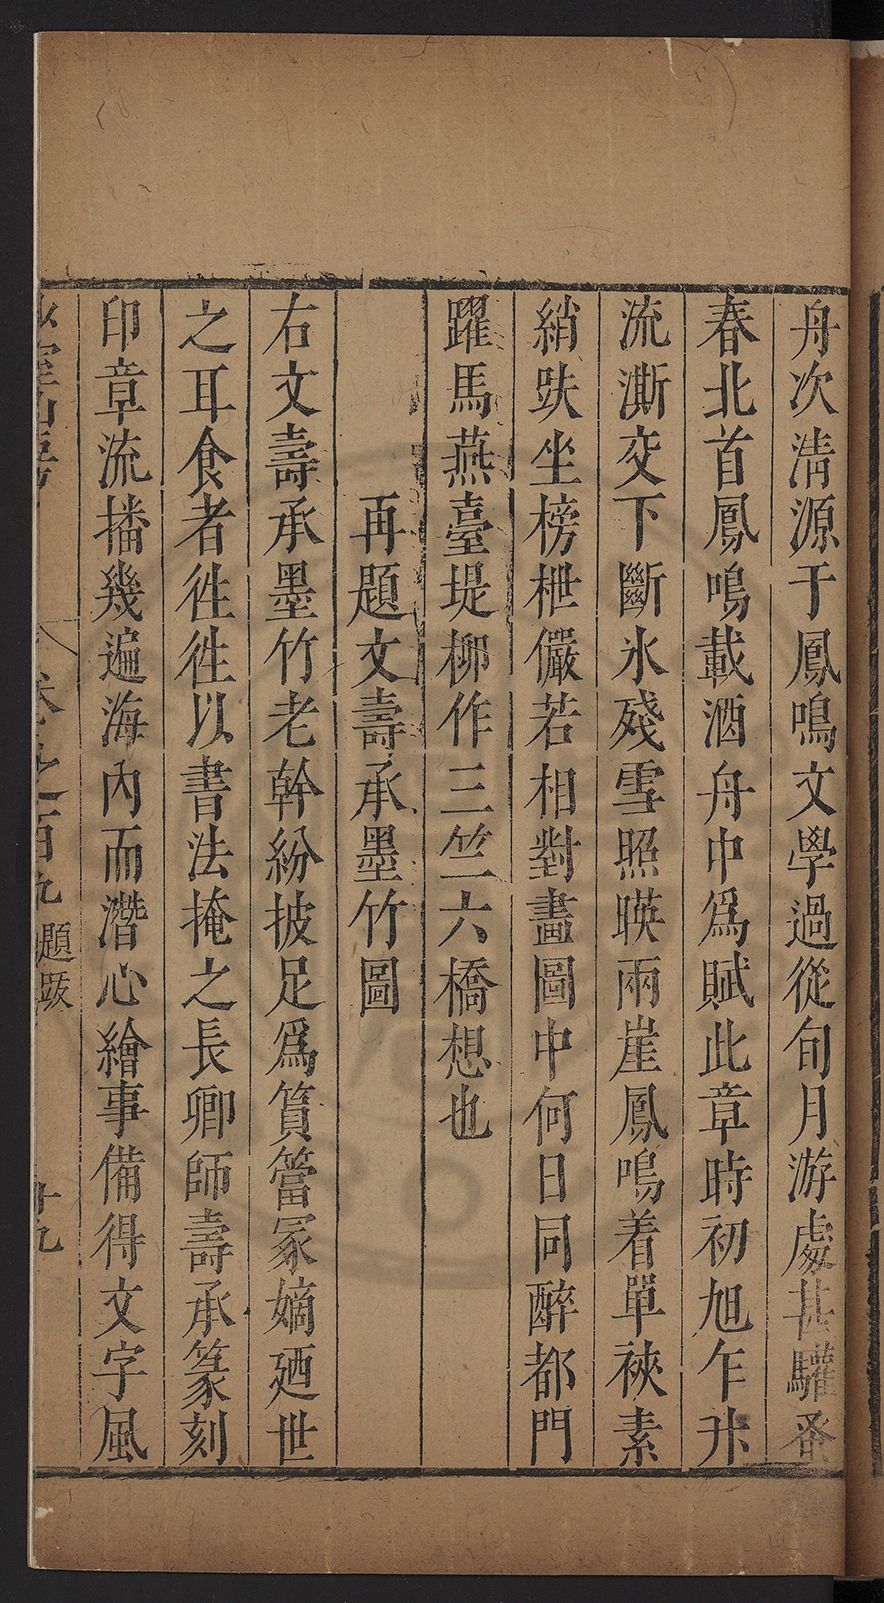 舟次清源于鳳鳴文學過從旬月游處甚驩蚤
春北首鳳鳴載酒舟中爲賦此章時初旭乍升
流澌交下斷氷殘雪照暎兩崖鳳鳴着單裌素
綃趺坐榜枻儼若相對畫圖中何日同醉都門
躍馬燕臺堤柳作三竺六橋想也
再題文壽承墨竹圖
右文壽承墨竹老幹紛披足爲篔簹冢嫡廼世
之耳食者徃徃以書法掩之長卿師壽承篆刻
印章流播幾遍海內而潛心繪事備得文字風
少室山房 卷之百九 題跋 廿九